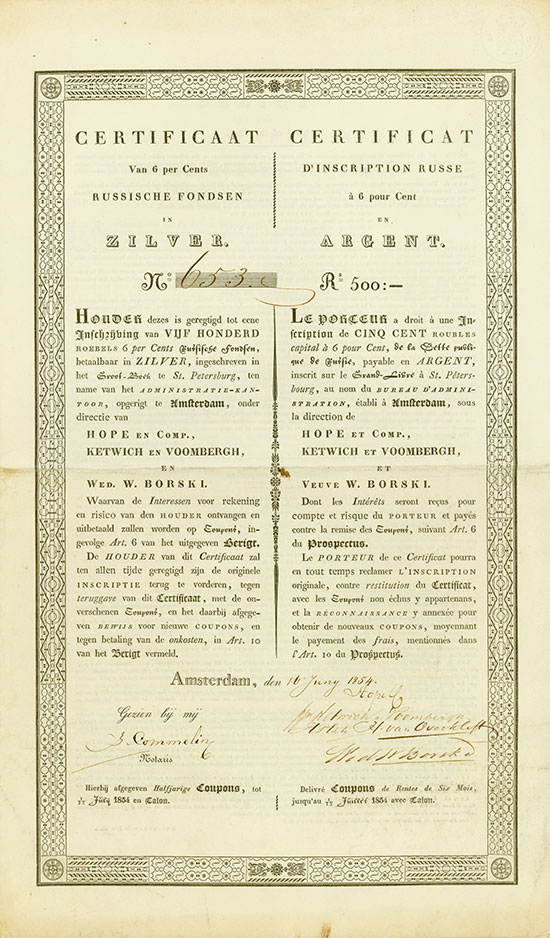 CERTIFICAAT
Van 6 per Cents
RUSSISCHE FONDSEN
IN
ZILVER.
CERTIFICAT
D'INSCRIPTION RUSSE
à 6 pour Cent
EN
ARGENT.
No 653.
Rs 500:—
HOUDER dezes is geregtigd tot eene
Inschrijving van VIJF HONDERD
ROEBELS 6 per Cents Russische Fondsen,
betaalbaar in ZILVER, ingeschreven in
het Groot-Boek te St. Petersburg, ten
name van het ADMINISTRATIE-KAN-
TOOR, opgerigt te Amsterdam, onder
directie van
HOPE EN COMP.,
KETWICH EN VOOMBERGH,
EN
WED. W. BORSKI.
Waarvan de Interessen voor rekening
en risico van den HOUDER ontvangen en
uitbetaald zullen worden op Coupons, in-
gevolge Art. 6 van het uitgegeven Berigt.
De HOUDER van dit Certificaat zal
ten allen tijde geregtigd zijn de originele
INSCRIPTIE terug te vorderen, tegen
teruggave van dit Certificaat, met de on-
verschenen Coupons, en het daarbij afgege-
ven BEWIJS voor nieuwe COUPONS, en
tegen betaling van de onkosten, in Art. 10
van het Berigt vermeld.
LE PORTEUR a droit à une In-
scription de CINQ CENT ROUBLES
capital à 6 pour Cent, de la Dette publi-
que de Russie, payable en ARGENT,
inscrit sur le Grand-Livre à St. Péters-
bourg, au nom du BUREAU D'ADMINI-
STRATION, établi à Amsterdam, sous
la direction de
HOPE ET COMP.,
KETWICH ET VOOMBERGH,
ET
VEUVE W. BORSKI.
Dont les Intérêts seront reçus pour
compte et risque du PORTEUR et payés
contre la remise des Coupons, suivant Art. 6
du Prospectus.
Le PORTEUR de ce Certificat pourra
en tout temps reclamer L'INSCRIPTION
originale, contre restitution du Certificat,
avec les Coupons non échus y appartenans,
et la RÉCONNAISSANCE y annexée pour
obtenir de nouveaux COUPONS, moyennant
le payement des frais, mentionnés dans
l'Art. 10 du Prospectus.
Amsterdam, den 16 Juny 1854.
Gezien bij mij
J. Commelin
Notaris
Hope
Ketwich & Voombergh
van Overklift
Wed W Borski
Hierbij afgegeven Halfjarige Coupons, tot
1/13 July 1854 en Talon.
Delivré Coupons de Rentes de Six Mois,
jusqu'au 1/13 Juillet 1854 avec Talon.